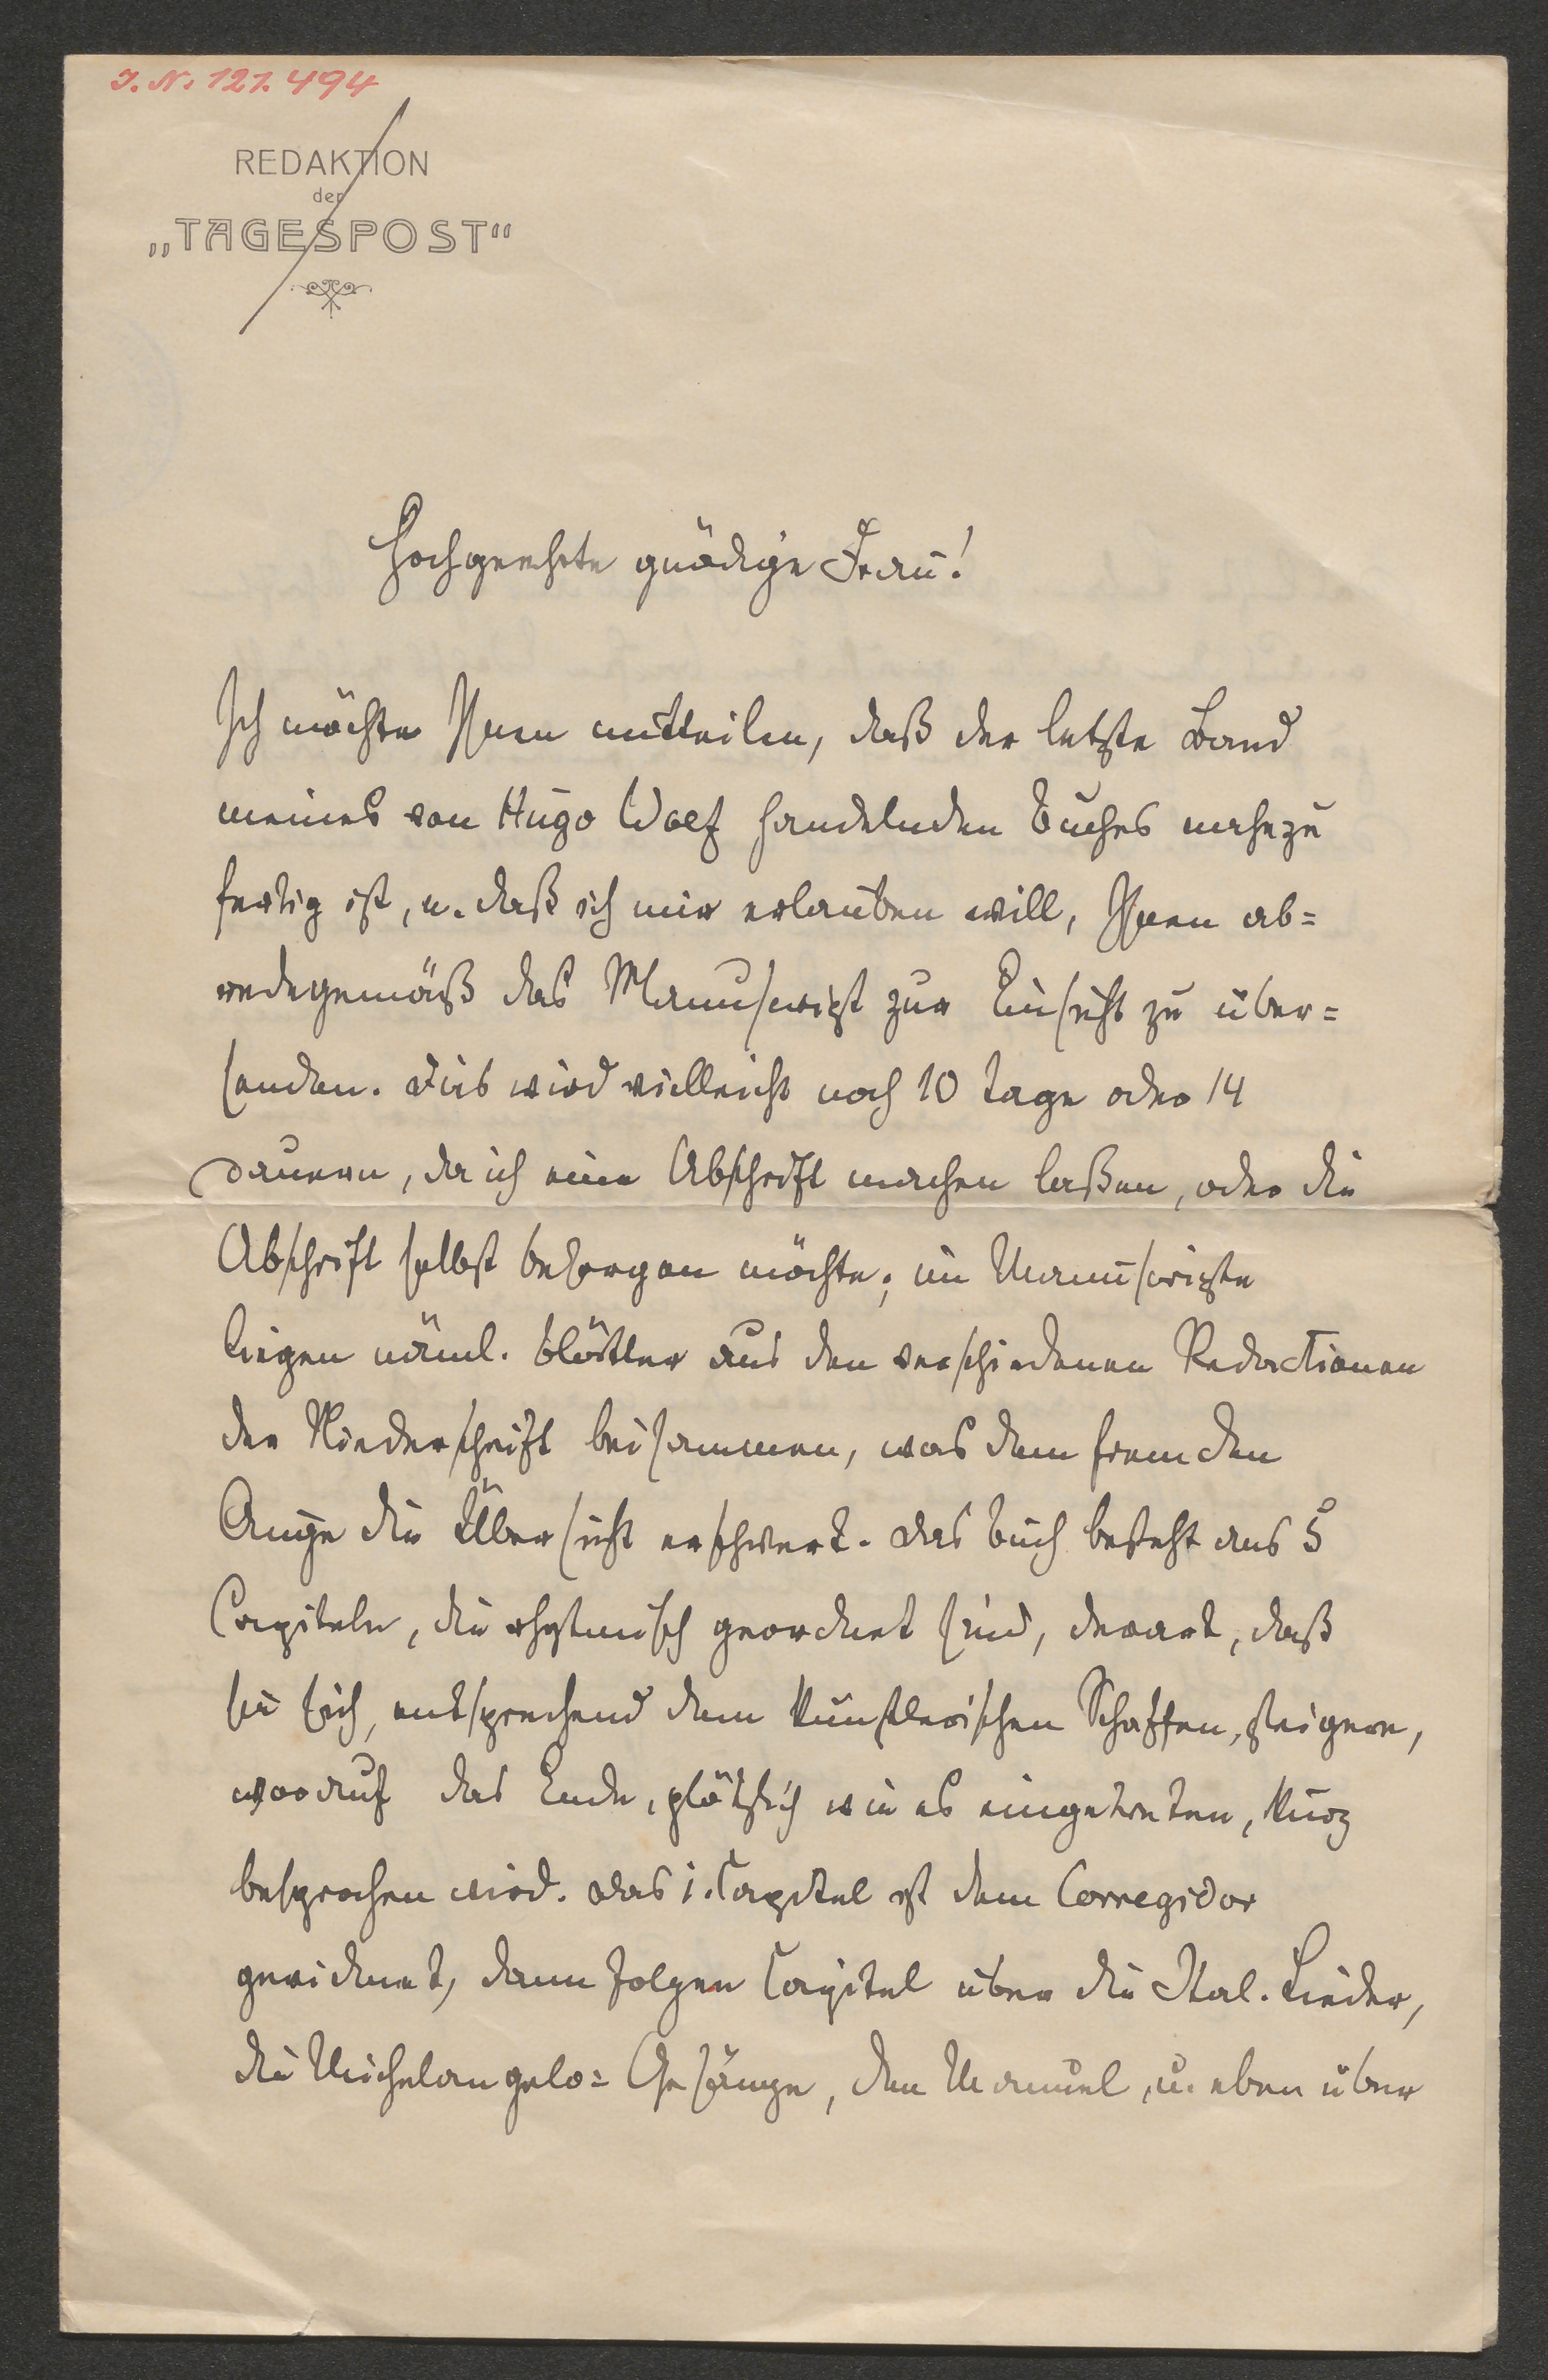 I. N. 121.494
REDAKTION
der
„TAGESPOST“
Hochgeehrte gnädige Frau!
Ich möchte Ihnen mitteilen, daß der letzte Band
meines von Hugo Wolf handelnden Buches nahezu
fertig ist, u. daß ich mir erlauben will, Ihnen ab=
redegemäß das Manuscript zur Einsicht zu über=
senden. Dies wird vielleicht noch 10 Tage oder 14
dauern, da ich eine Abschrift machen laßen, oder die
Abschrift selbst besorgen möchte; im Manuscripte
liegen näml. Blätter aus den verschiedenen Redactionen
der Niederschrift beisammen, was dem fremden
Auge die Übersicht erschwert. Das Buch besteht aus 5
Capiteln, die rhytmisch geordnet sind, derart, daß
sie sich, entsprechend dem künstlerischen Schaffen, steigern,
worauf das Ende, plötzlich wie es eingetreten, kurz
besprochen wird. Das 1. Capitel ist dem Corregidor
gewidmet, dann folgen Capitel über die Ital. Lieder,
die Michelangelo=Gesänge, den Manuel, u. eben über